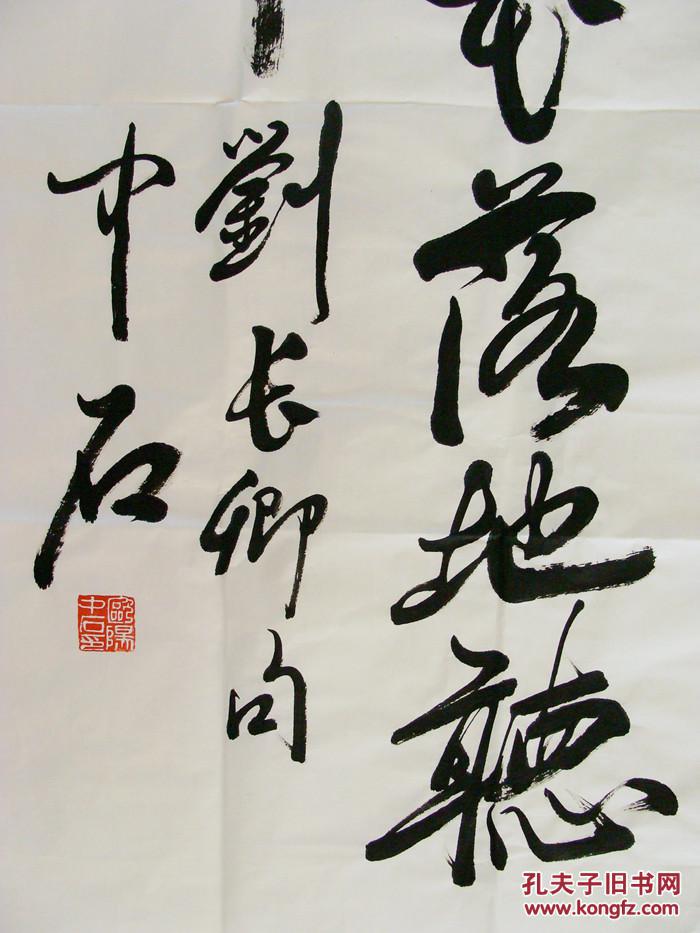 花落地聽
劉长卿句
中石
歐陽中石印
孔夫子旧书网
www.kongfz.com